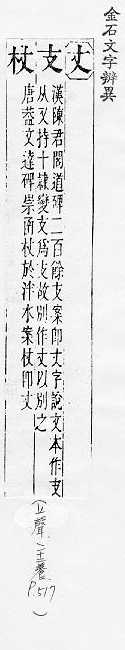 金石文字辨異
丈
支 漢陳君閣道碑二百餘支案即丈字說文本作支
从又持十隸變支爲丈故別作丈以別之
杖 唐蓋文達碑崇函杖於泮水案杖即丈
(上聲二十二養 P.517)